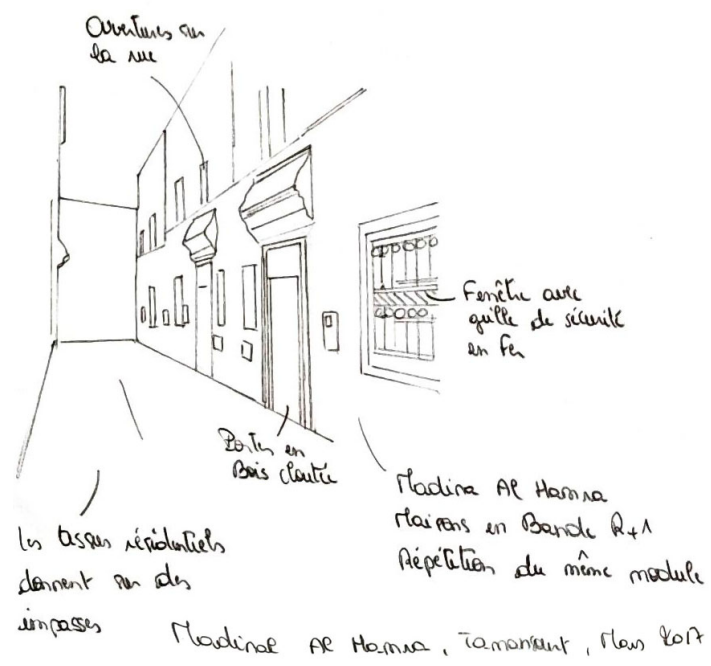 Ouvertures sur
la rue
Fenêtre avec
grille de sécurité
en Fer
Portes en
Bois cloutée
Madina Al Hamra
Maisons en Bande R+1
Répétition du même module
les tissus résidentiels
donnent sur des
impasses
Madinat Al Hamra, Tamansourt, Mars 2017